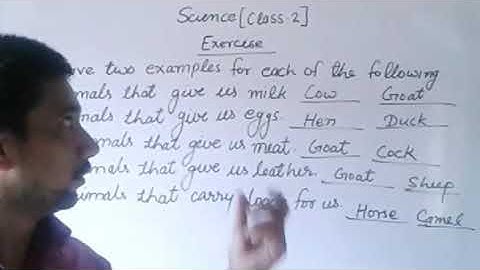 Science [Class-2]
Exercise
two examples for each of the following
that give us milk Cow Goat
that give us eggs. Hen Duck
that give us meat. Goat Cock
that give us leather. Goat Sheep
that carry for us. Horse Camel